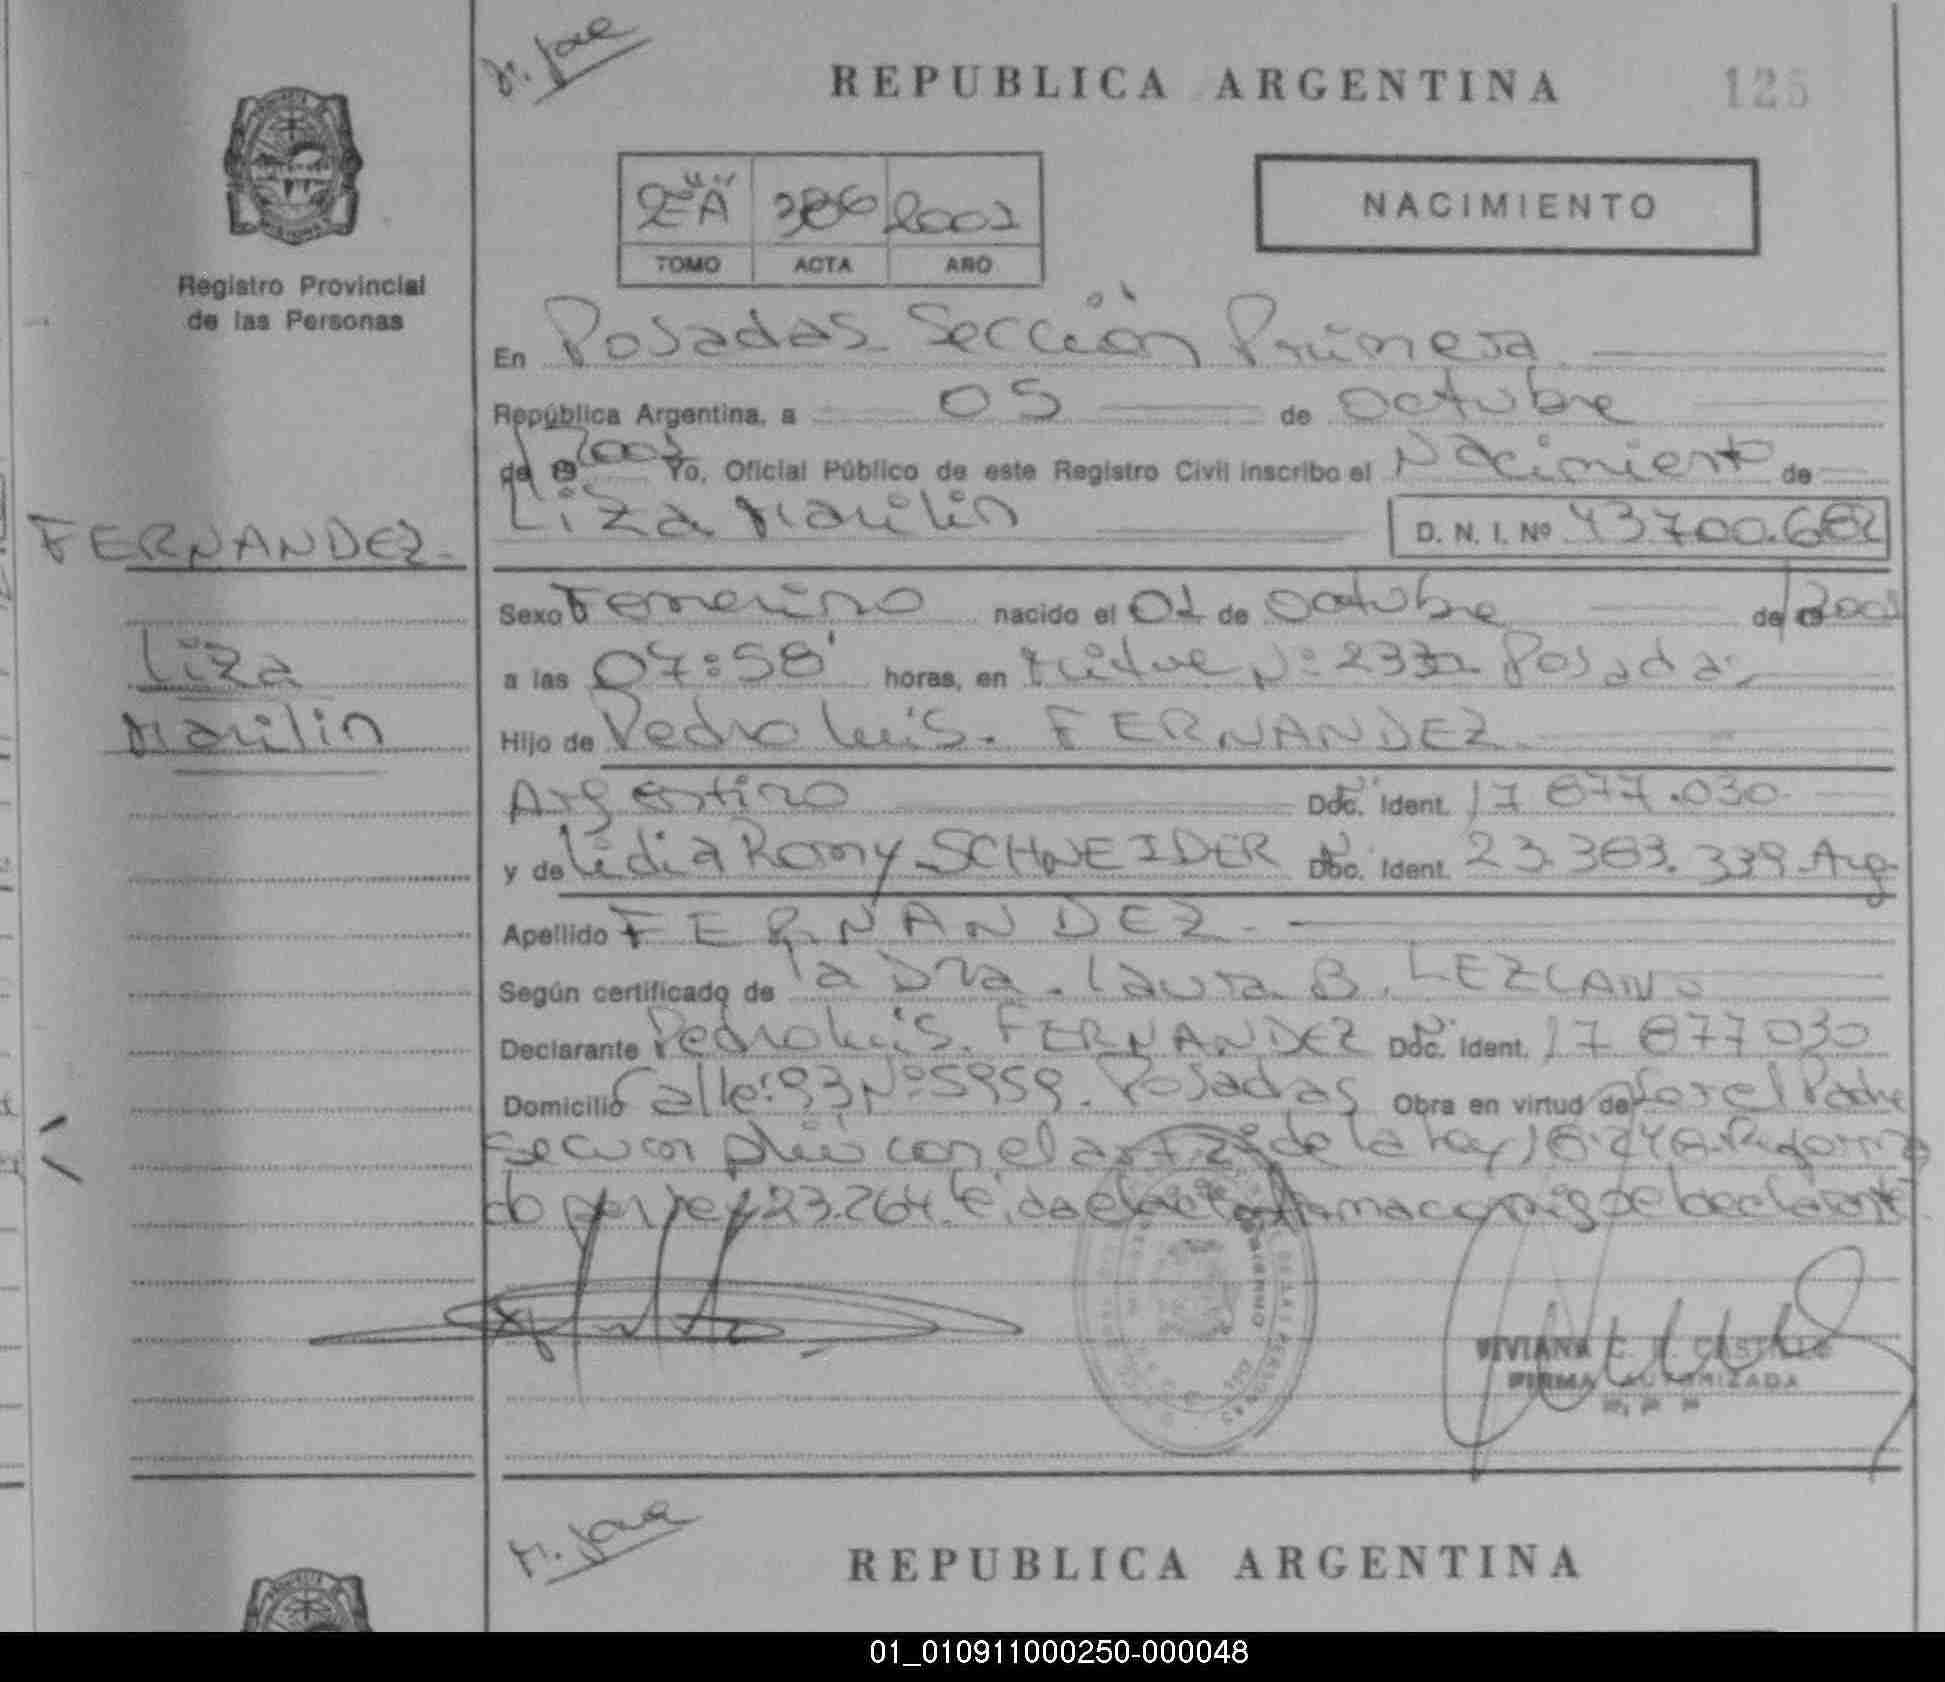 REPUBLICA ARGENTINA
125
NACIMIENTO
2º "A" 386 2001
TOMO ACTA AÑO
Registro Provincial
de las Personas
En Posadas Sección Primera
República Argentina, a 05 de octubre
de 2001 Yo, Oficial Público de este Registro Civil inscribo el Nacimiento de
Liza Marilin D. N. I. Nº 43700.682
FERNANDEZ
Liza
Marilin
Sexo Femenino nacido el 01 de octubre de 2001
a las 07:58' horas, en Nº 2332 Posadas
Hijo de Pedro Luis FERNANDEZ
Argentino Doc. Ident. 17 677.030
y de Lidia Romy SCHNEIDER Doc. Ident. 23.383.339 Arg
Apellido FERNANDEZ
Según certificado de la Dra. Laura B. LEZCANO
Declarante Pedro Luis FERNANDEZ Doc. Ident. 17 677030
Domicilio Calle: 93 Nº 5959. Posadas Obra en virtud de Por el Padre
se cumplió con el art 2 de la Ley 18.248. Reforma
do por Ley 23.264. Leida el acta firma conmigo el declarante
VIVIANA CASTILLO
FIRMA AUTORIZADA
REPUBLICA ARGENTINA
01_010911000250-000048